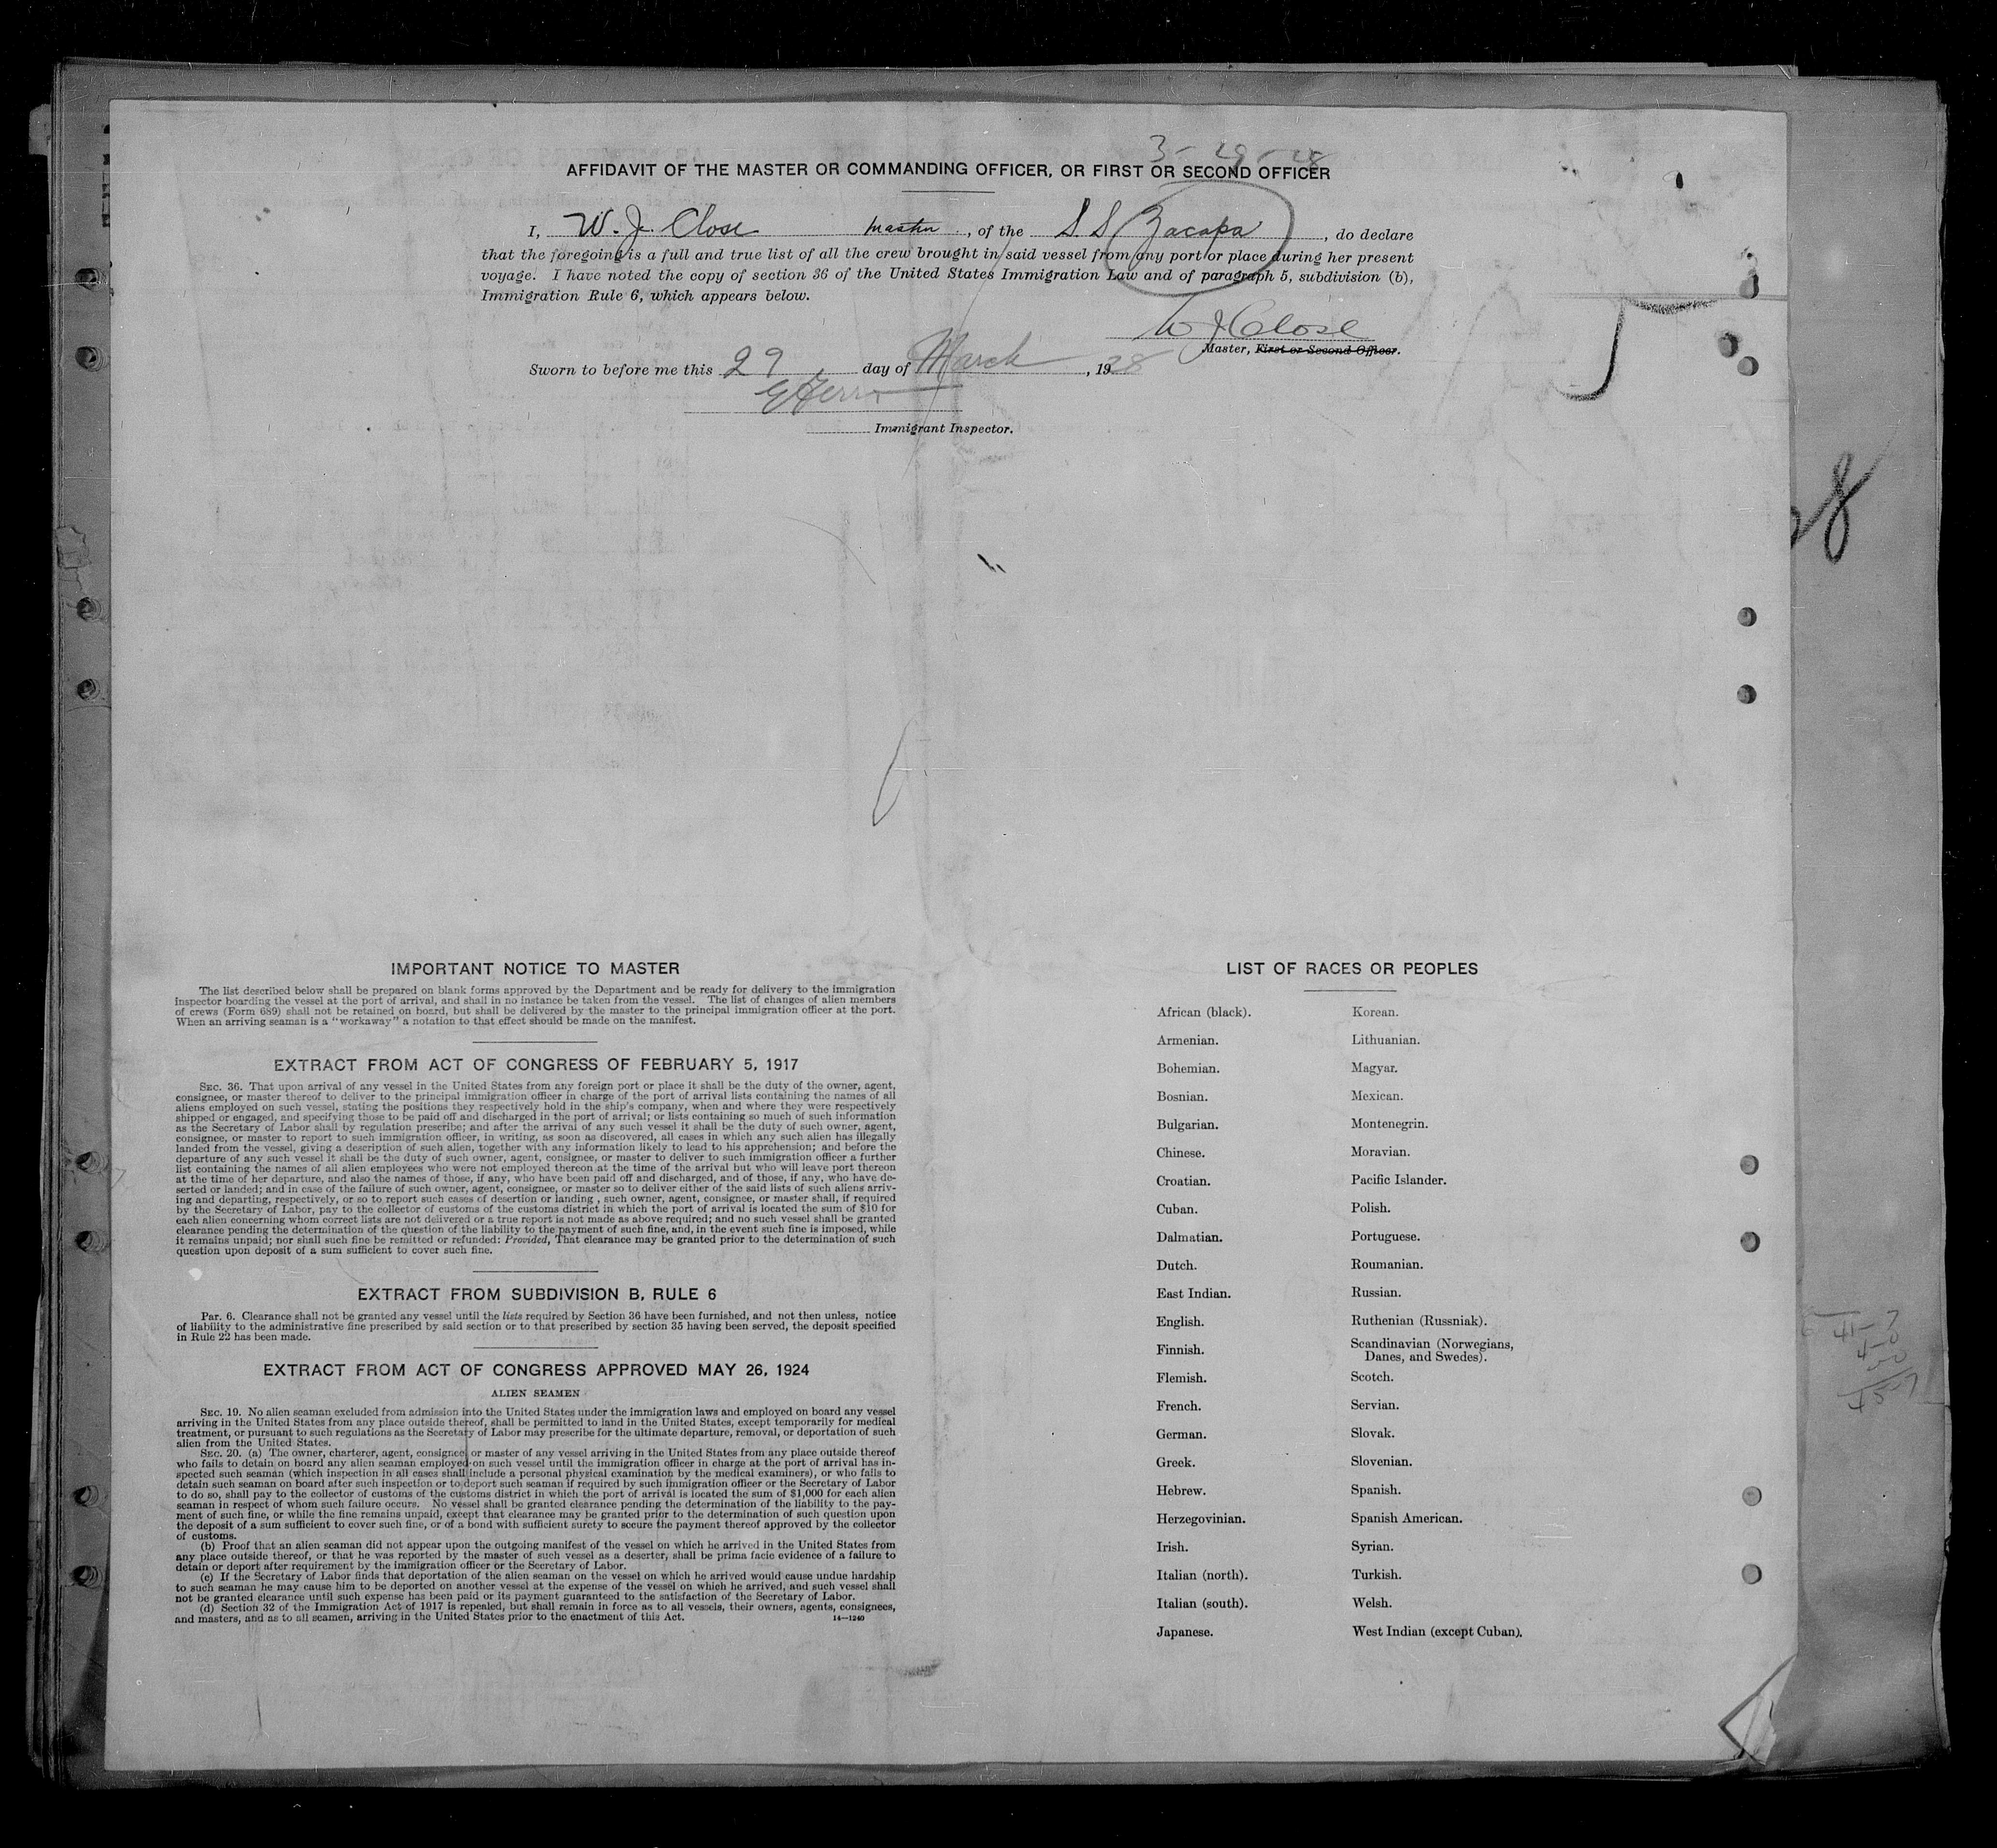 3-29-28
AFFIDAVIT OF THE MASTER OR COMMANDING OFFICER, OR FIRST OR SECOND OFFICER
I, W. J. Close master, of the S.S Zacapa, do declare
that the foregoing is a full and true list of all the crew brought in said vessel from any port or place during her present
voyage. I have noted the copy of section 36 of the United States Immigration Law and of paragraph 5, subdivision (b),
Immigration Rule 6, which appears below.
W J Close
Master, First or Second Officer.
Sworn to before me this 29 day of March, 1928
Immigrant Inspector.
28
IMPORTANT NOTICE TO MASTER
The list described below shall be prepared on blank forms approved by the Department and be ready for delivery to the immigration
inspector boarding the vessel at the port of arrival, and shall in no instance be taken from the vessel. The list of changes of alien members
of crews (Form 689) shall not be retained on board, but shall be delivered by the master to the principal immigration officer at the port.
When an arriving seaman is a "workaway" a notation to that effect should be made on the manifest.
EXTRACT FROM ACT OF CONGRESS OF FEBRUARY 5, 1917
SEC. 36. That upon arrival of any vessel in the United States from any foreign port or place it shall be the duty of the owner, agent,
consignee, or master thereof to deliver to the principal immigration officer in charge of the port of arrival lists containing the names of all
aliens employed on such vessel, stating the positions they respectively hold in the ship's company, when and where they were respectively
shipped or engaged, and specifying those to be paid off and discharged in the port of arrival; or lists containing so much of such information
as the Secretary of Labor shall by regulation prescribe; and after the arrival of any such vessel it shall be the duty of such owner, agent,
consignee, or master to report to such immigration officer, in writing, as soon as discovered, all cases in which any such alien has illegally
landed from the vessel, giving a description of such alien, together with any information likely to lead to his apprehension; and before the
departure of any such vessel it shall be the duty of such owner, agent, consignee, or master to deliver to such immigration officer a further
list containing the names of all alien employees who were not employed thereon at the time of the arrival but who will leave port thereon
at the time of her departure, and also the names of those, if any, who have been paid off and discharged, and of those, if any, who have de-
serted or landed; and in case of the failure of such owner, agent, consignee, or master so to deliver either of the said lists of such aliens arriv-
ing and departing, respectively, or so to report such cases of desertion or landing, such owner, agent, consignee, or master shall, if required
by the Secretary of Labor, pay to the collector of customs of the customs district in which the port of arrival is located the sum of $10 for
each alien concerning whom correct lists are not delivered or a true report is not made as above required; and no such vessel shall be granted
clearance pending the determination of the question of the liability to the payment of such fine, and, in the event such fine is imposed, while
it remains unpaid; nor shall such fine be remitted or refunded: Provided, That clearance may be granted prior to the determination of such
question upon deposit of a sum sufficient to cover such fine.
EXTRACT FROM SUBDIVISION B, RULE 6
Par. 6. Clearance shall not be granted any vessel until the lists required by Section 36 have been furnished, and not then unless, notice
of liability to the administrative fine prescribed by said section or to that prescribed by section 35 having been served, the deposit specified
in Rule 22 has been made.
EXTRACT FROM ACT OF CONGRESS APPROVED MAY 26, 1924
ALIEN SEAMEN
SEC. 19. No alien seaman excluded from admission into the United States under the immigration laws and employed on board any vessel
arriving in the United States from any place outside thereof, shall be permitted to land in the United States, except temporarily for medical
treatment, or pursuant to such regulations as the Secretary of Labor may prescribe for the ultimate departure, removal, or deportation of such
alien from the United States.
SEC. 20. (a) The owner, charterer, agent, consignee, or master of any vessel arriving in the United States from any place outside thereof
who fails to detain on board any alien seaman employed on such vessel until the immigration officer in charge at the port of arrival has in-
spected such seaman (which inspection in all cases shall include a personal physical examination by the medical examiners), or who fails to
detain such seaman on board after such inspection or to deport such seaman if required by such immigration officer or the Secretary of Labor
to do so, shall pay to the collector of customs of the customs district in which the port of arrival is located the sum of $1,000 for each alien
seaman in respect of whom such failure occurs. No vessel shall be granted clearance pending the determination of the liability to the pay-
ment of such fine, or while the fine remains unpaid, except that clearance may be granted prior to the determination of such question upon
the deposit of a sum sufficient to cover such fine, or of a bond with sufficient surety to secure the payment thereof approved by the collector
of customs.
(b) Proof that an alien seaman did not appear upon the outgoing manifest of the vessel on which he arrived in the United States from
any place outside thereof, or that he was reported by the master of such vessel as a deserter, shall be prima facie evidence of a failure to
detain or deport after requirement by the immigration officer or the Secretary of Labor.
(c) If the Secretary of Labor finds that deportation of the alien seaman on the vessel on which he arrived would cause undue hardship
to such seaman he may cause him to be deported on another vessel at the expense of the vessel on which he arrived, and such vessel shall
not be granted clearance until such expense has been paid or its payment guaranteed to the satisfaction of the Secretary of Labor.
(d) Section 32 of the Immigration Act of 1917 is repealed, but shall remain in force as to all vessels, their owners, agents, consignees,
and masters, and as to all seamen, arriving in the United States prior to the enactment of this Act.
14-1240
LIST OF RACES OR PEOPLES
African (black).
Armenian.
Bohemian.
Bosnian.
Bulgarian.
Chinese.
Croatian.
Cuban.
Dalmatian.
Dutch.
East Indian.
English.
Finnish.
Flemish.
French.
German.
Greek.
Hebrew.
Herzegovinian.
Irish.
Italian (north).
Italian (south).
Japanese.
Korean.
Lithuanian.
Magyar.
Mexican.
Montenegrin.
Moravian.
Pacific Islander.
Polish.
Portuguese.
Roumanian.
Russian.
Ruthenian (Russniak).
Scandinavian (Norwegians,
Danes, and Swedes).
Scotch.
Servian.
Slovak.
Slovenian.
Spanish.
Spanish American.
Syrian.
Turkish.
Welsh.
West Indian (except Cuban).